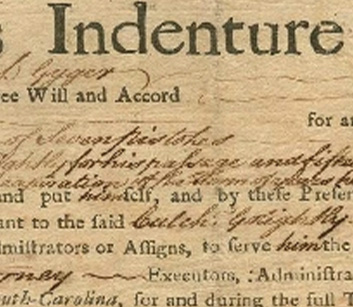 s Indenture
Gyger
ee Will and Accord
for a
of Seven pistoles
for his passage and fifte
and put himself, and by these Presen
ant to the said Culch: Golightly
dministrators or Assigns, to serve him the
orney Executors, Administra
outh-Carolina, for and during the full T